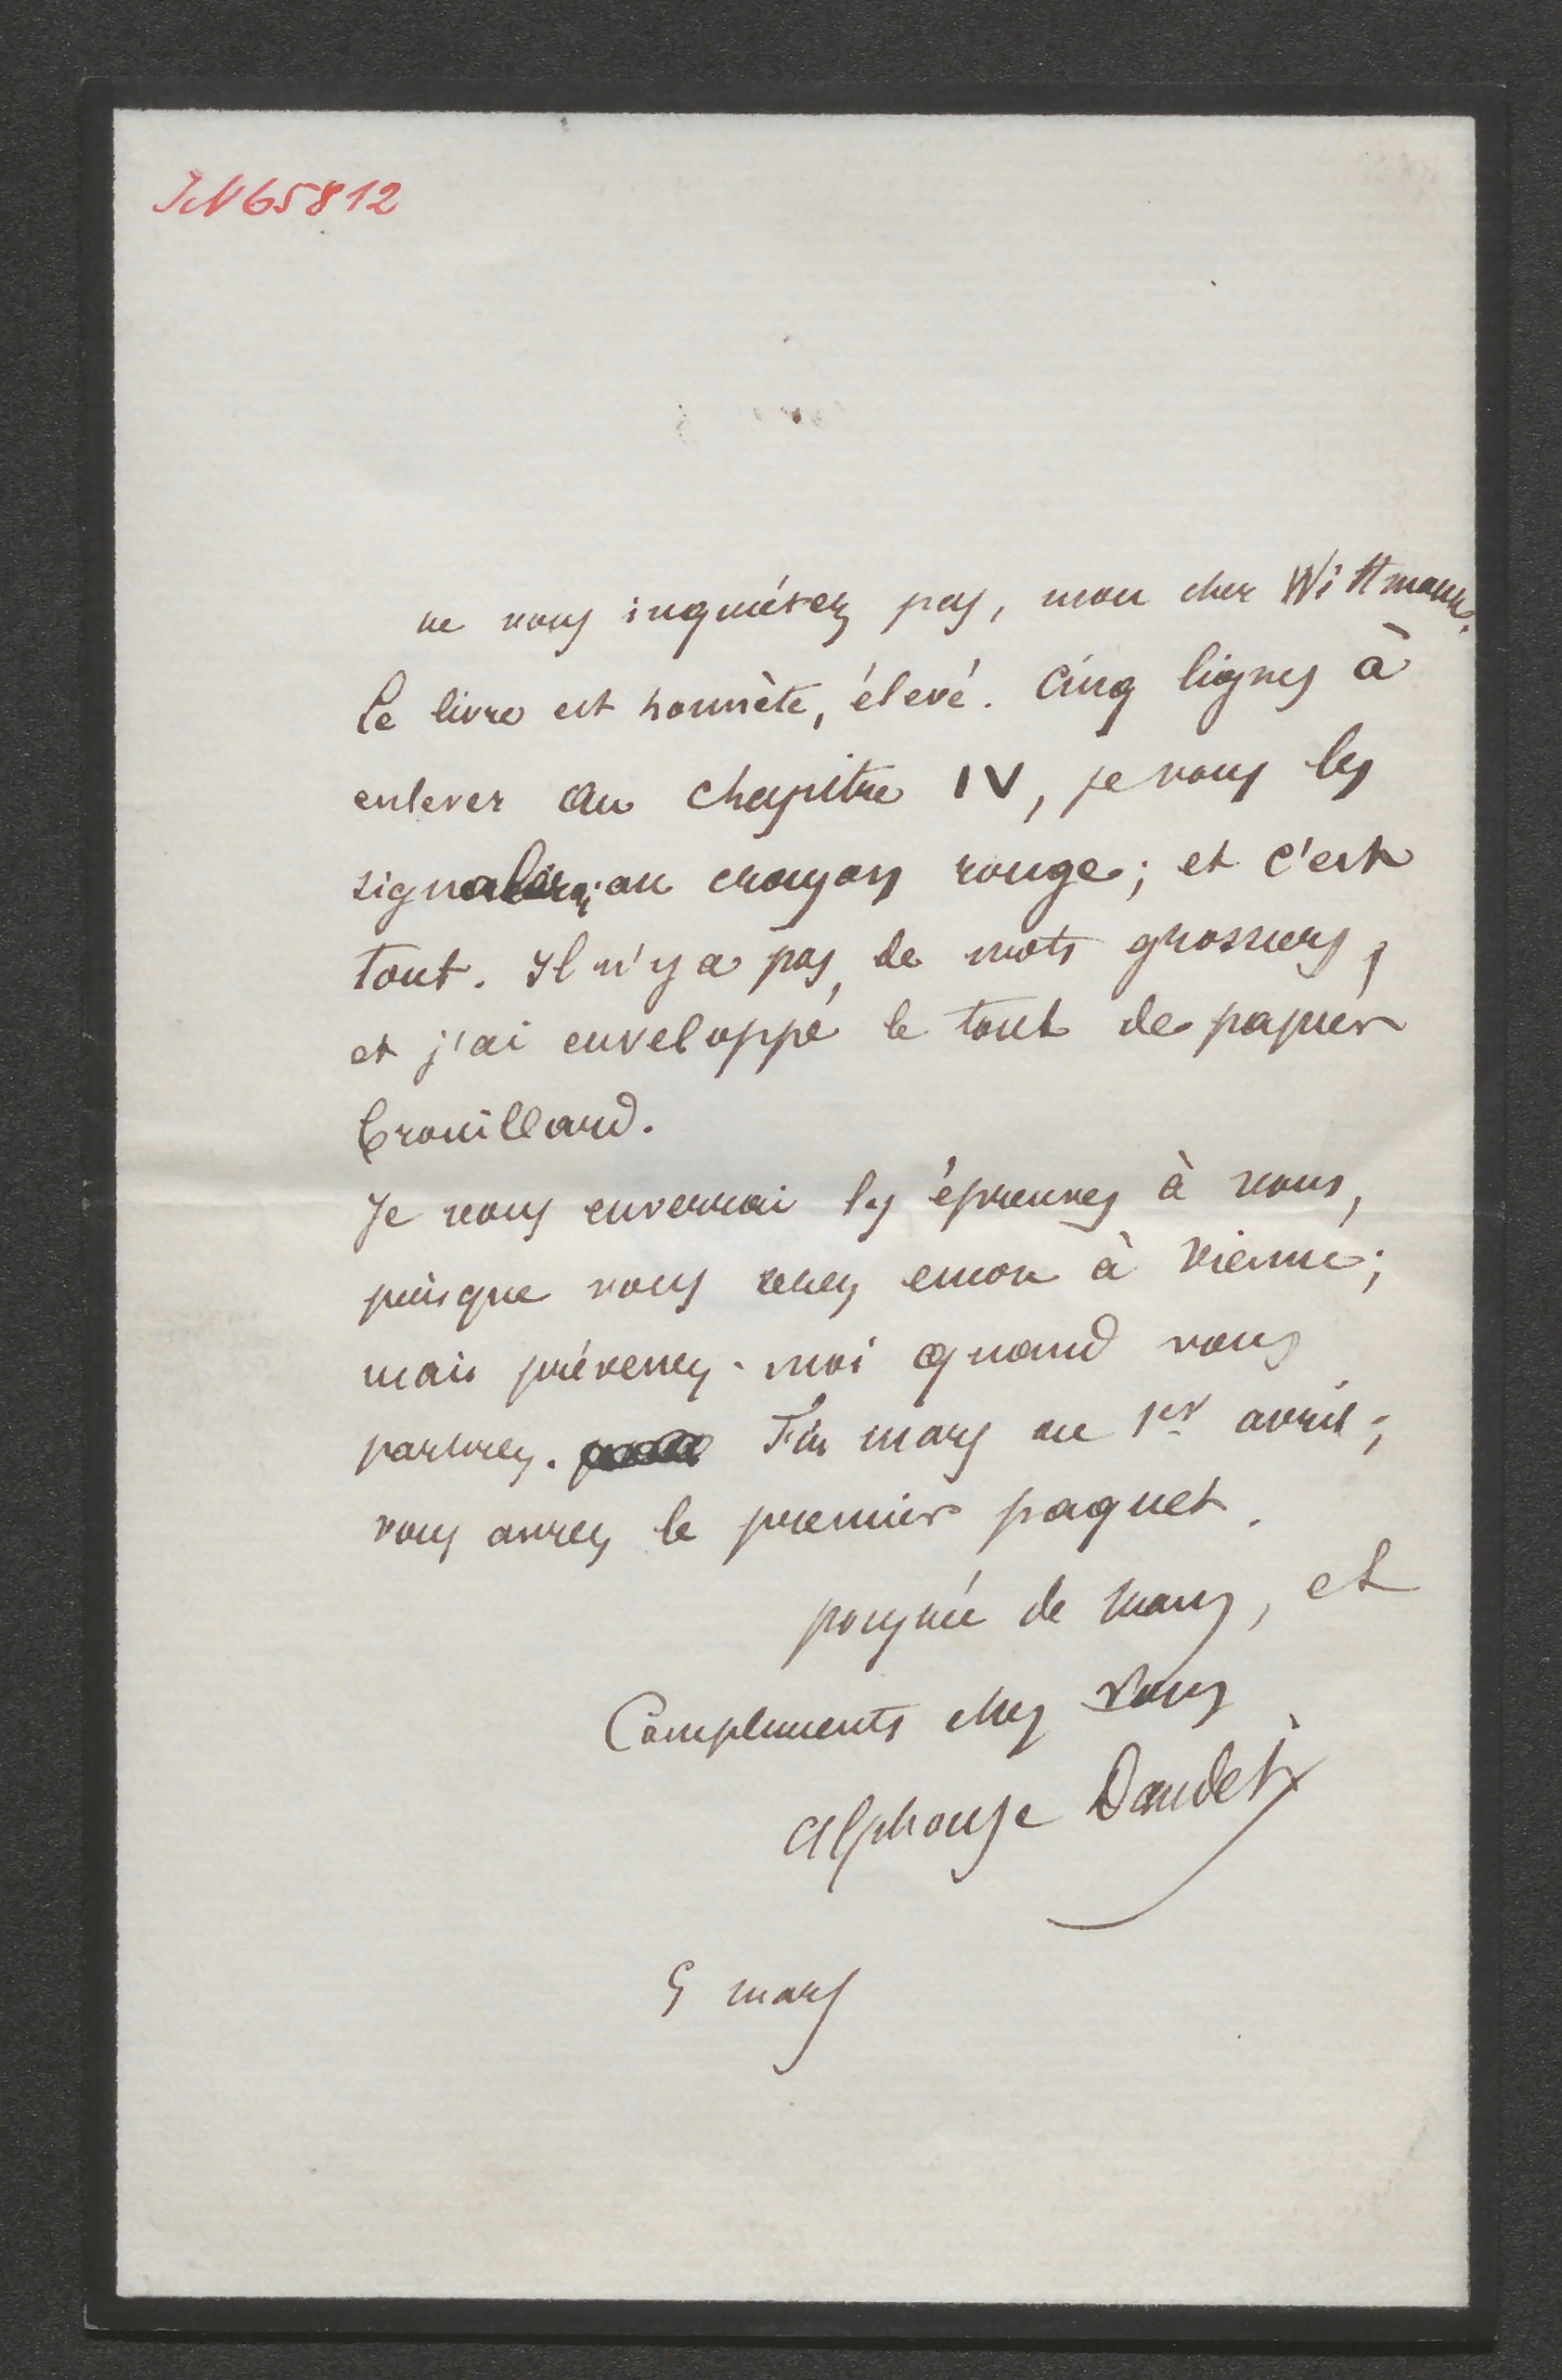 IN 65812
ne vous inquiétez pas, mon cher Wittmann.
Le livre est honnète, élevé. Cinq lignes à
enlever au chapitre IV, je vous les
signalerai au crayon rouge; et c'est
tout. Il n'y a pas de mots grossiers,
et j'ai enveloppé le tout de papier
brouillard.
Je vous enverrai les épreuves à vous,
puisque vous restez encore à Vienne;
mais prévenez-moi quand vous
partirez. Fin mars ou 1er avril;
vous aurez le premier paquet.
poignée de mains, et
Compliments chez vous
Alphonse Daudet
5 mars